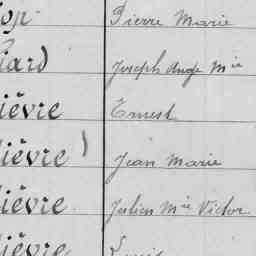 op Pierre Marie
iard Joseph Ange Mie
ièvre Ernest
ièvre ) Jean Marie
ièvre Julien Mie Victor
ièvre Louis